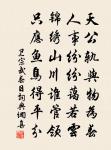 天公軌與物為春
人事紛紛蕩若雲
錦繡山川誰管領
只應魚鳥得平分
衛宗武春日詞